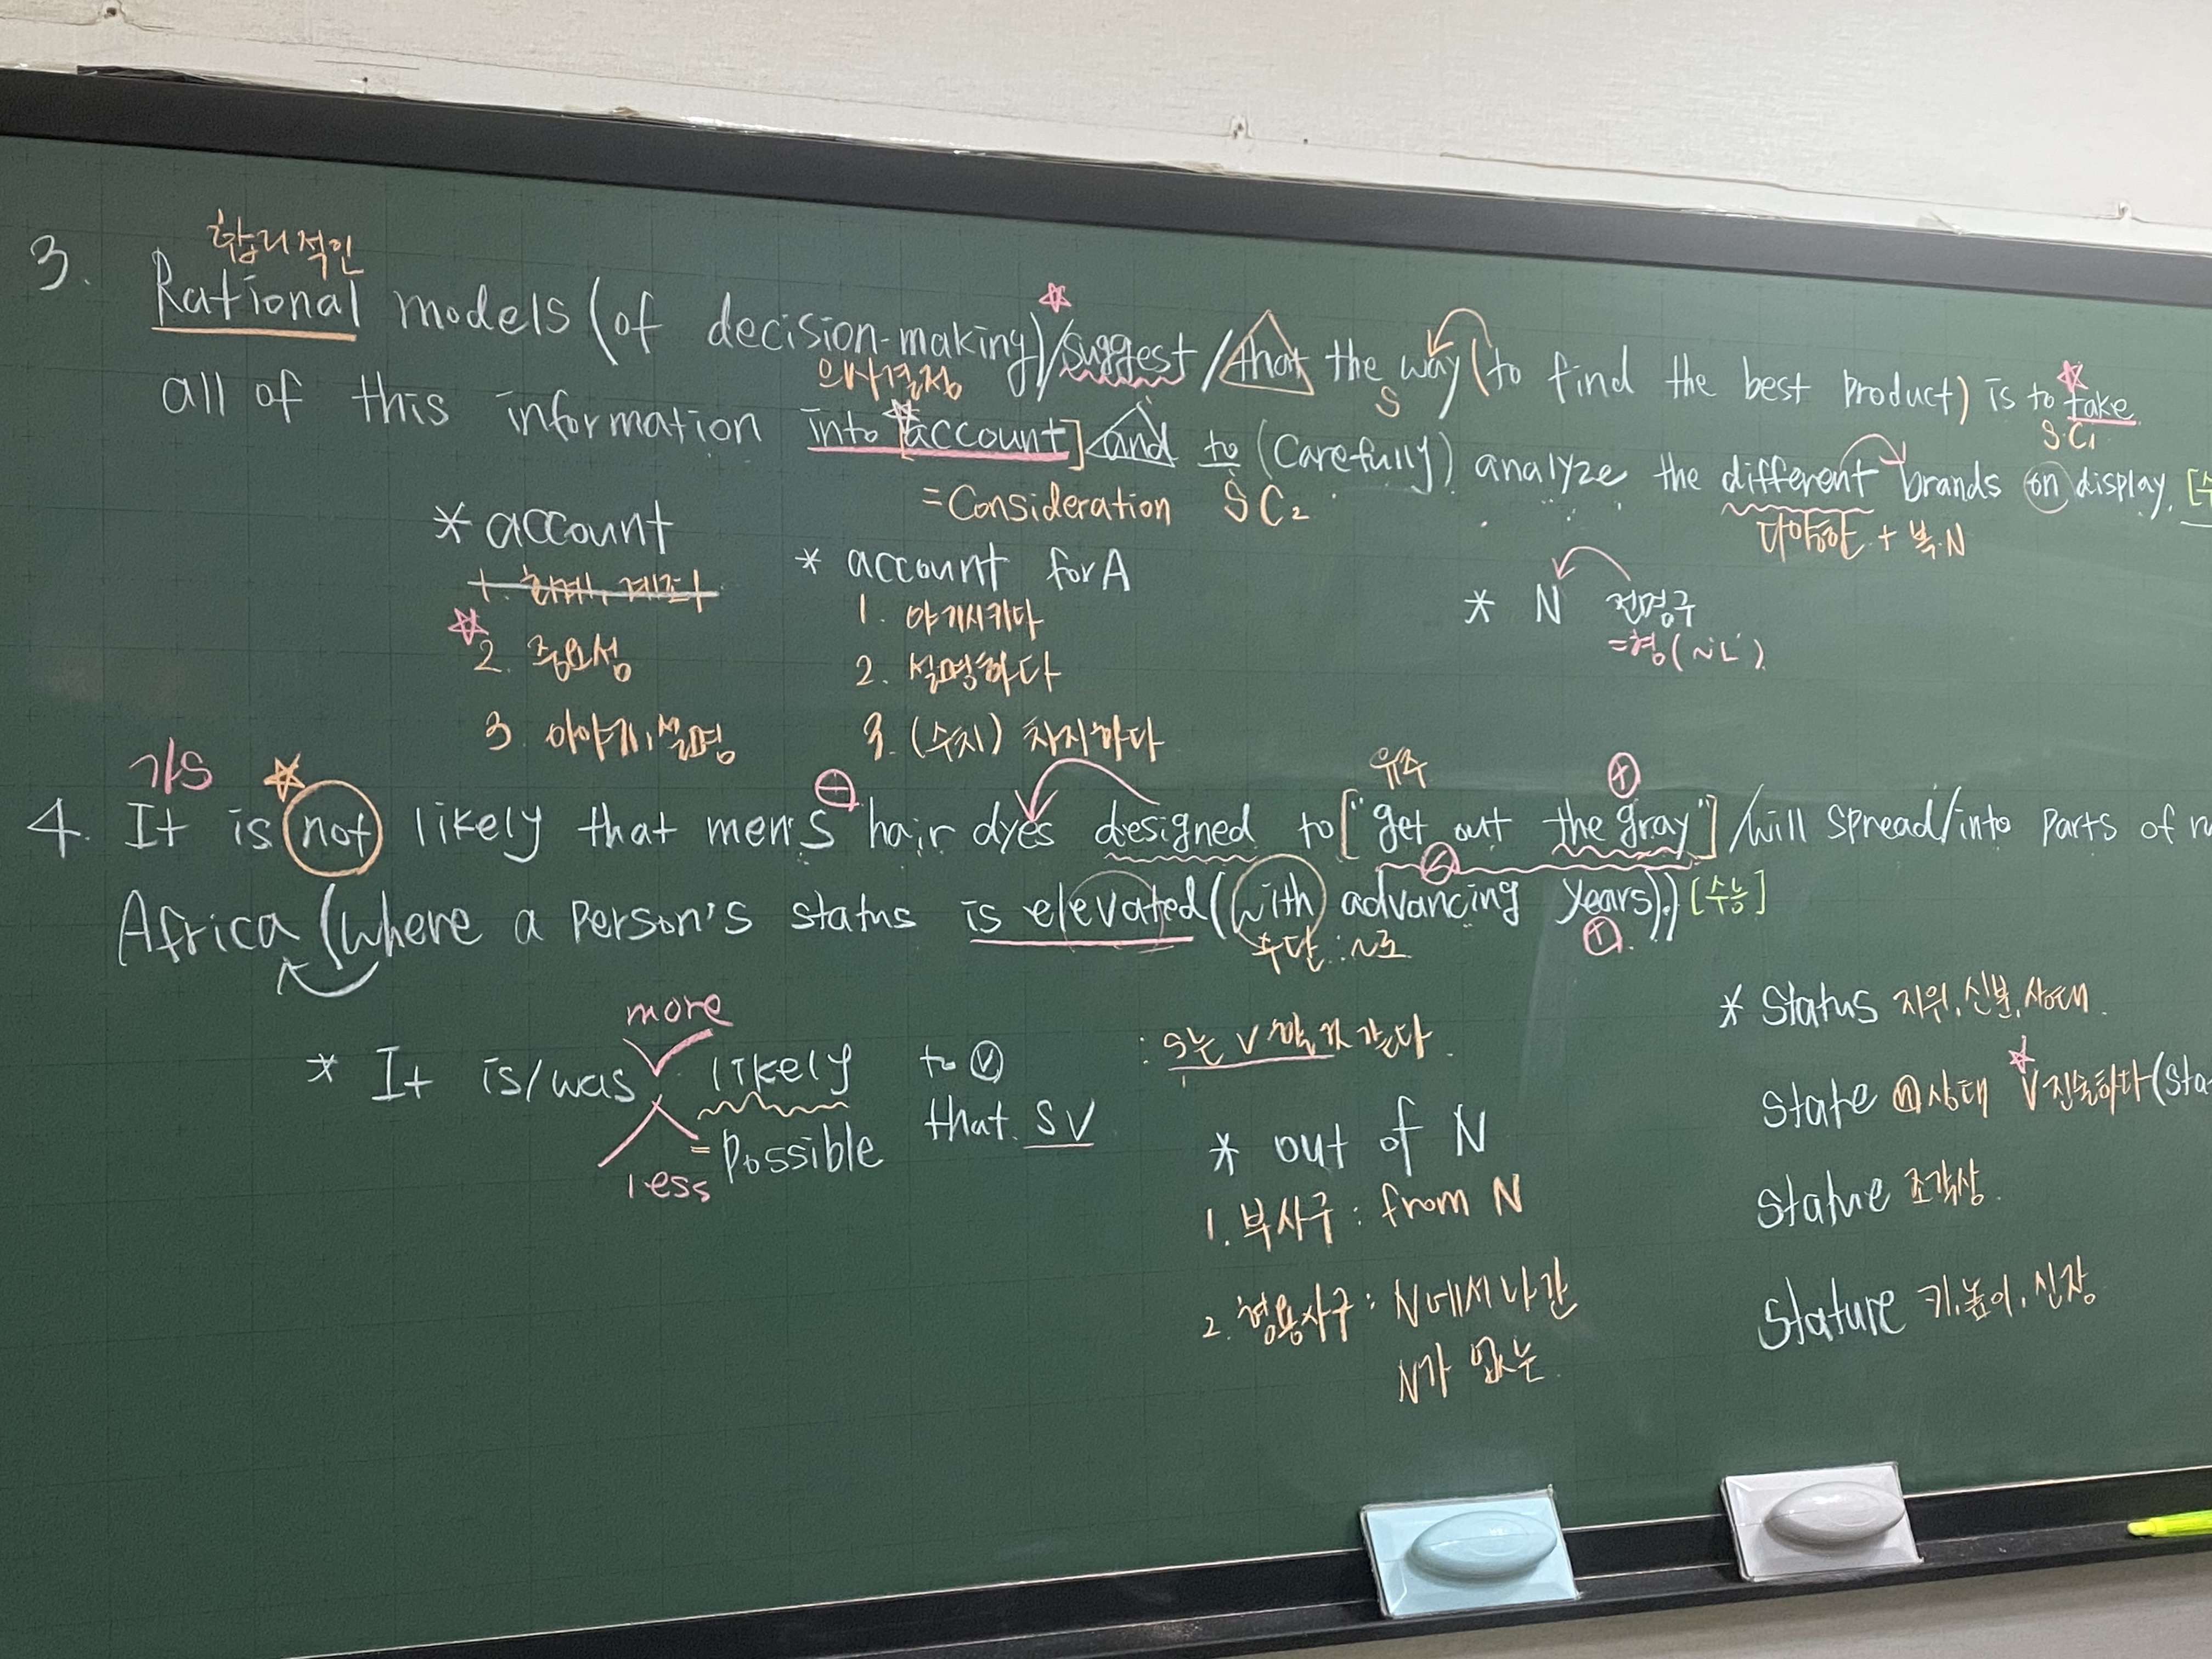 합리적인
3. Rational models (of decision-making)/suggest/that the way (to find the best product) is to take
의사결정 S S.C₁
all of this information into [account] and to (carefully) analyze the different brands on display. [수
=Consideration S C₂ 다양한 + 복.N
* account
2. 중요성
3. 이야기, 설명
* account for A
1. 야기시키다
2. 설명하다
3. (수치) 차지하다
* N 전명구
=형(~ㄴ)
가S 유추
4. It is not likely that men's hair dyes designed to ["get out the gray"] /will spread/into parts of
Africa (where a person's status is elevated (with advancing years)) [수능]
수단 : ~로
more
* It is/was likely to Ⓥ : S는 V 할 것 같다.
that SV
less =possible
* out of N
1. 부사구 : from N
2. 형용사구 : N에서 나간
N가 없는
* Status 지위, 신분, 상태.
State ⓝ상태 V진술하다 (sta
Statue 조각상.
Stature 키, 높이, 신장